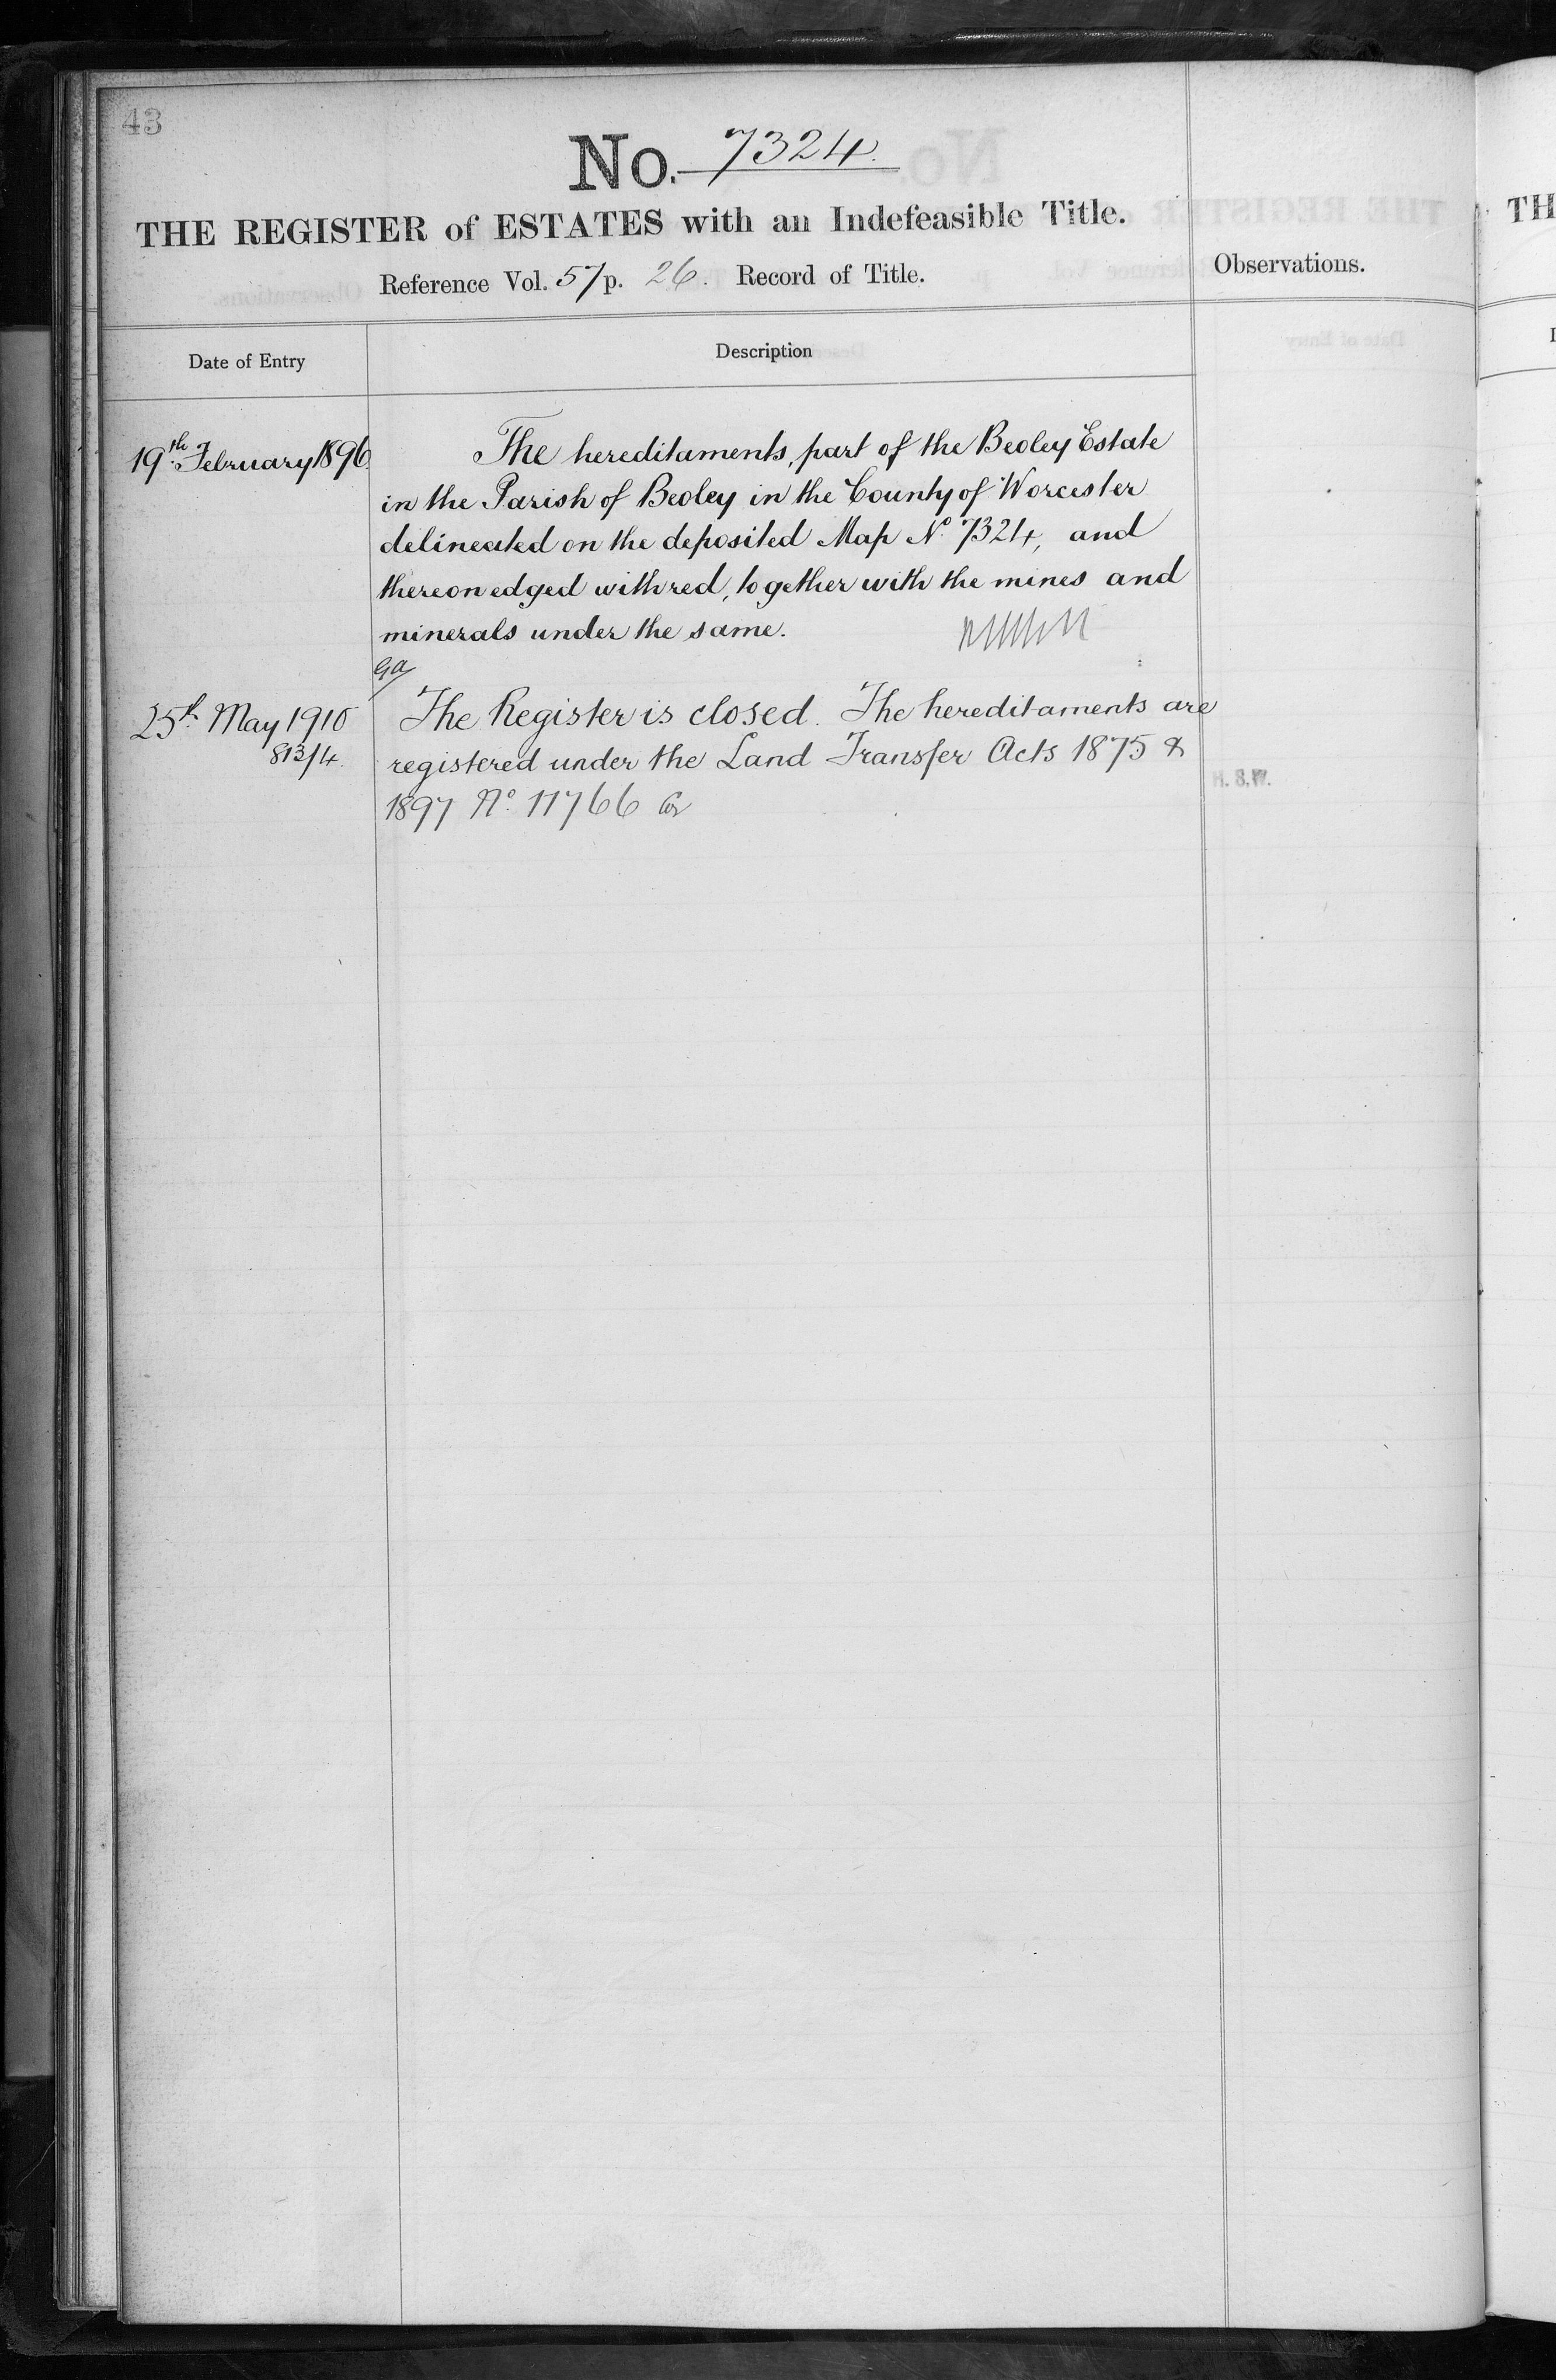 43
No. 7324.
THE REGISTER of ESTATES with an Indefeasible Title.
Reference Vol. 57 p. 26. Record of Title.
Observations.
Date of Entry
Description
19th February 1896
The hereditaments, part of the Beoley Estate
in the Parish of Beoley in the County of Worcester
delineated on the deposited Map No. 7324, and
thereon edged with red, together with the mines and
minerals under the same.
25th May 1910
813/4.
The Register is closed. The hereditaments are
registered under the Land Transfer Acts 1875 &
1897 No. 11766
H.S.W.
TH